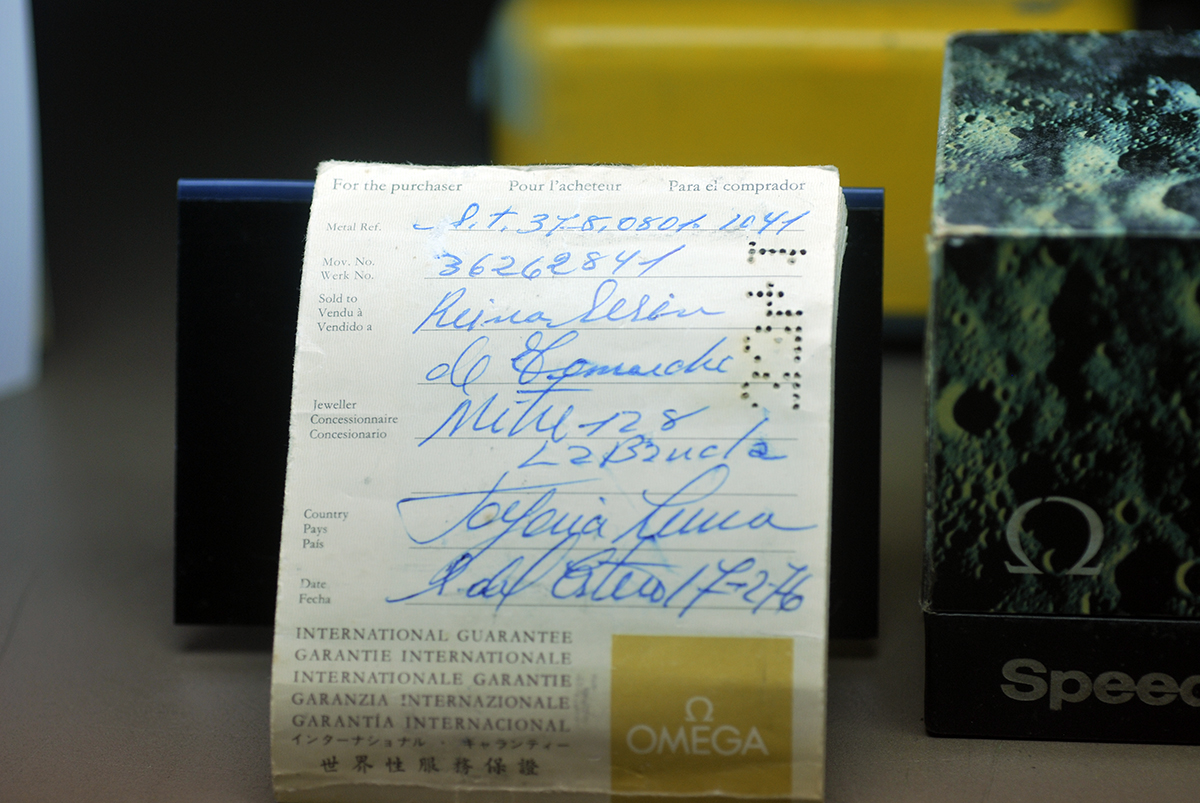 For the purchaser Pour l'acheteur Para el comprador
Metal Ref. St. 378.0801. 1041
Mov. No. 36262841
Werk No.
Sold to Reina
Vendu à
Vendido a
de
Jeweller Mitre 128
Concessionnaire
Concesionario
La Banda
Country
Pays
País
Date S. del Estero 17-2-76
Fecha
INTERNATIONAL GUARANTEE
GARANTIE INTERNATIONALE
INTERNATIONALE GARANTIE
GARANZIA INTERNAZIONALE
GARANTÍA INTERNACIONAL
インターナショナル・ギャランティー
世界性服務保證
Ω
OMEGA
Ω
Speed